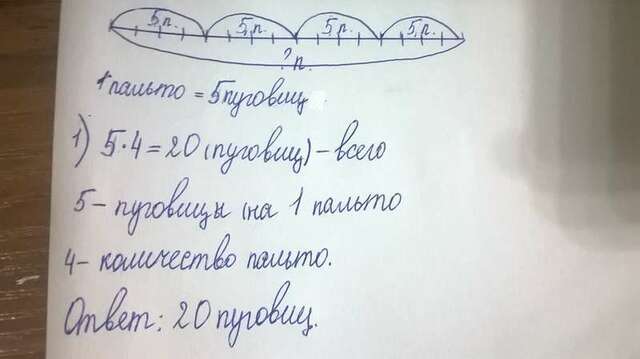 5 п. 5 п. 5 р. 5 р.
? п.
1 пальто = 5 пуговиц
1) 5·4=20 (пуговиц) – всего
5 – пуговицы (на 1 пальто
4 – количество пальто.
Ответ: 20 пуговиц.